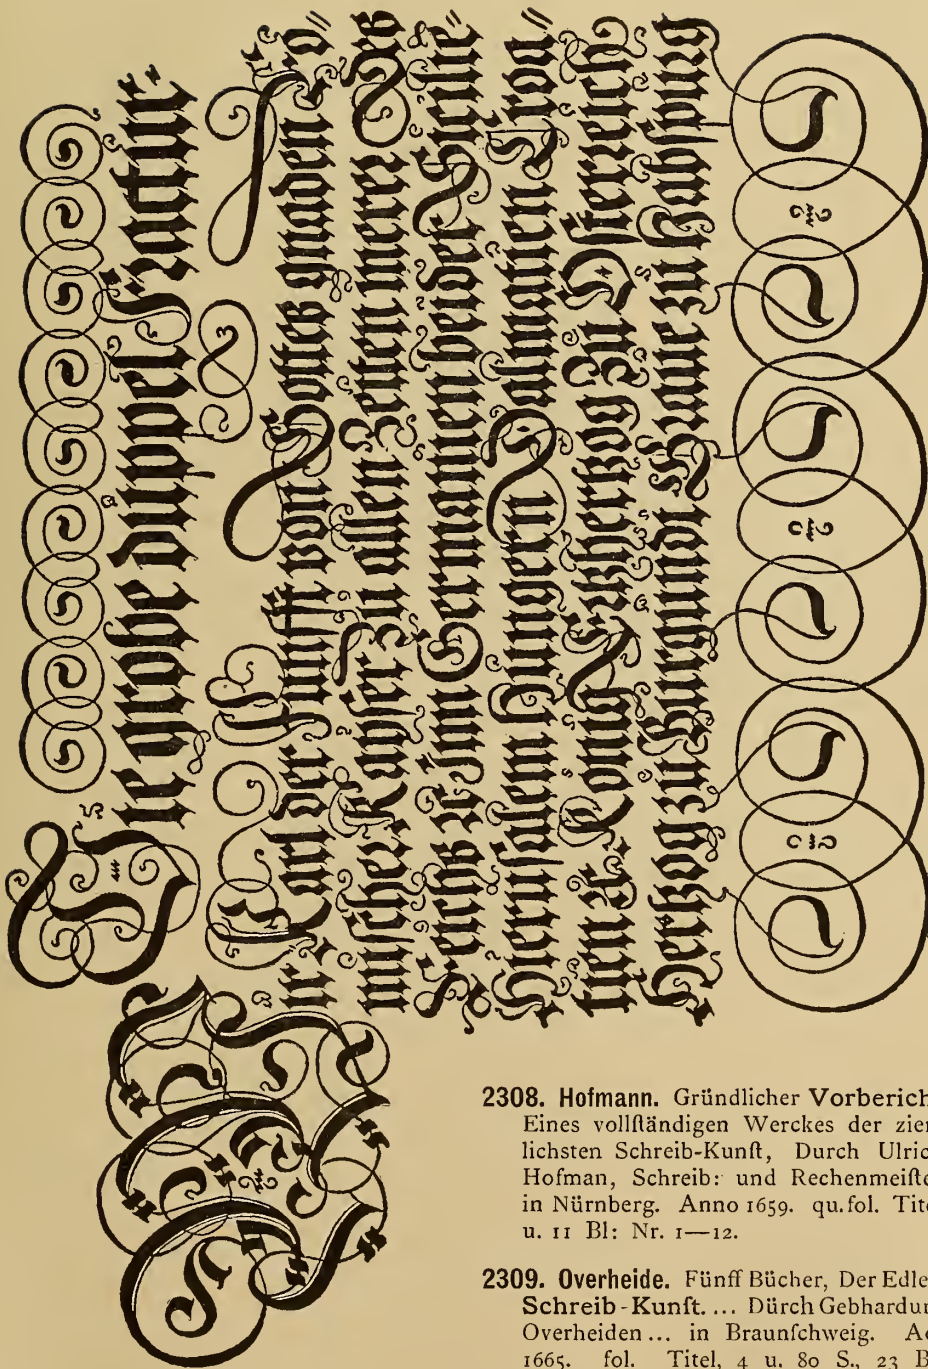 Die grobe duppel Fractur.
Wir Karl der Funfft von Gottes gnaden Rö=
mischer Kayser Zu allen Zeiten merer Des
Reichs zc Jnn Germannien beyder Sicilie=
Hierusalem Hungern Dalmatien Kroa=
tien zc. Konig Ertzhertzog Zu Osterreich
Hertzog zu Burgundi Graue zu Habspurg
2308. Hofmann. Gründlicher Vorberich
Eines vollſtändigen Werckes der zier
lichsten Schreib-Kunſt, Durch Ulric
Hofman, Schreib: und Rechenmeiſte
in Nürnberg. Anno 1659. qu. fol. Tite
u. 11 Bl: Nr. 1—12.
2309. Overheide. Fünff Bücher, Der Edle
Schreib-Kunſt. ... Dürch Gebhardun
Overheiden ... in Braunſchweig. A
1665. fol. Titel, 4 u. 80 S., 23 B